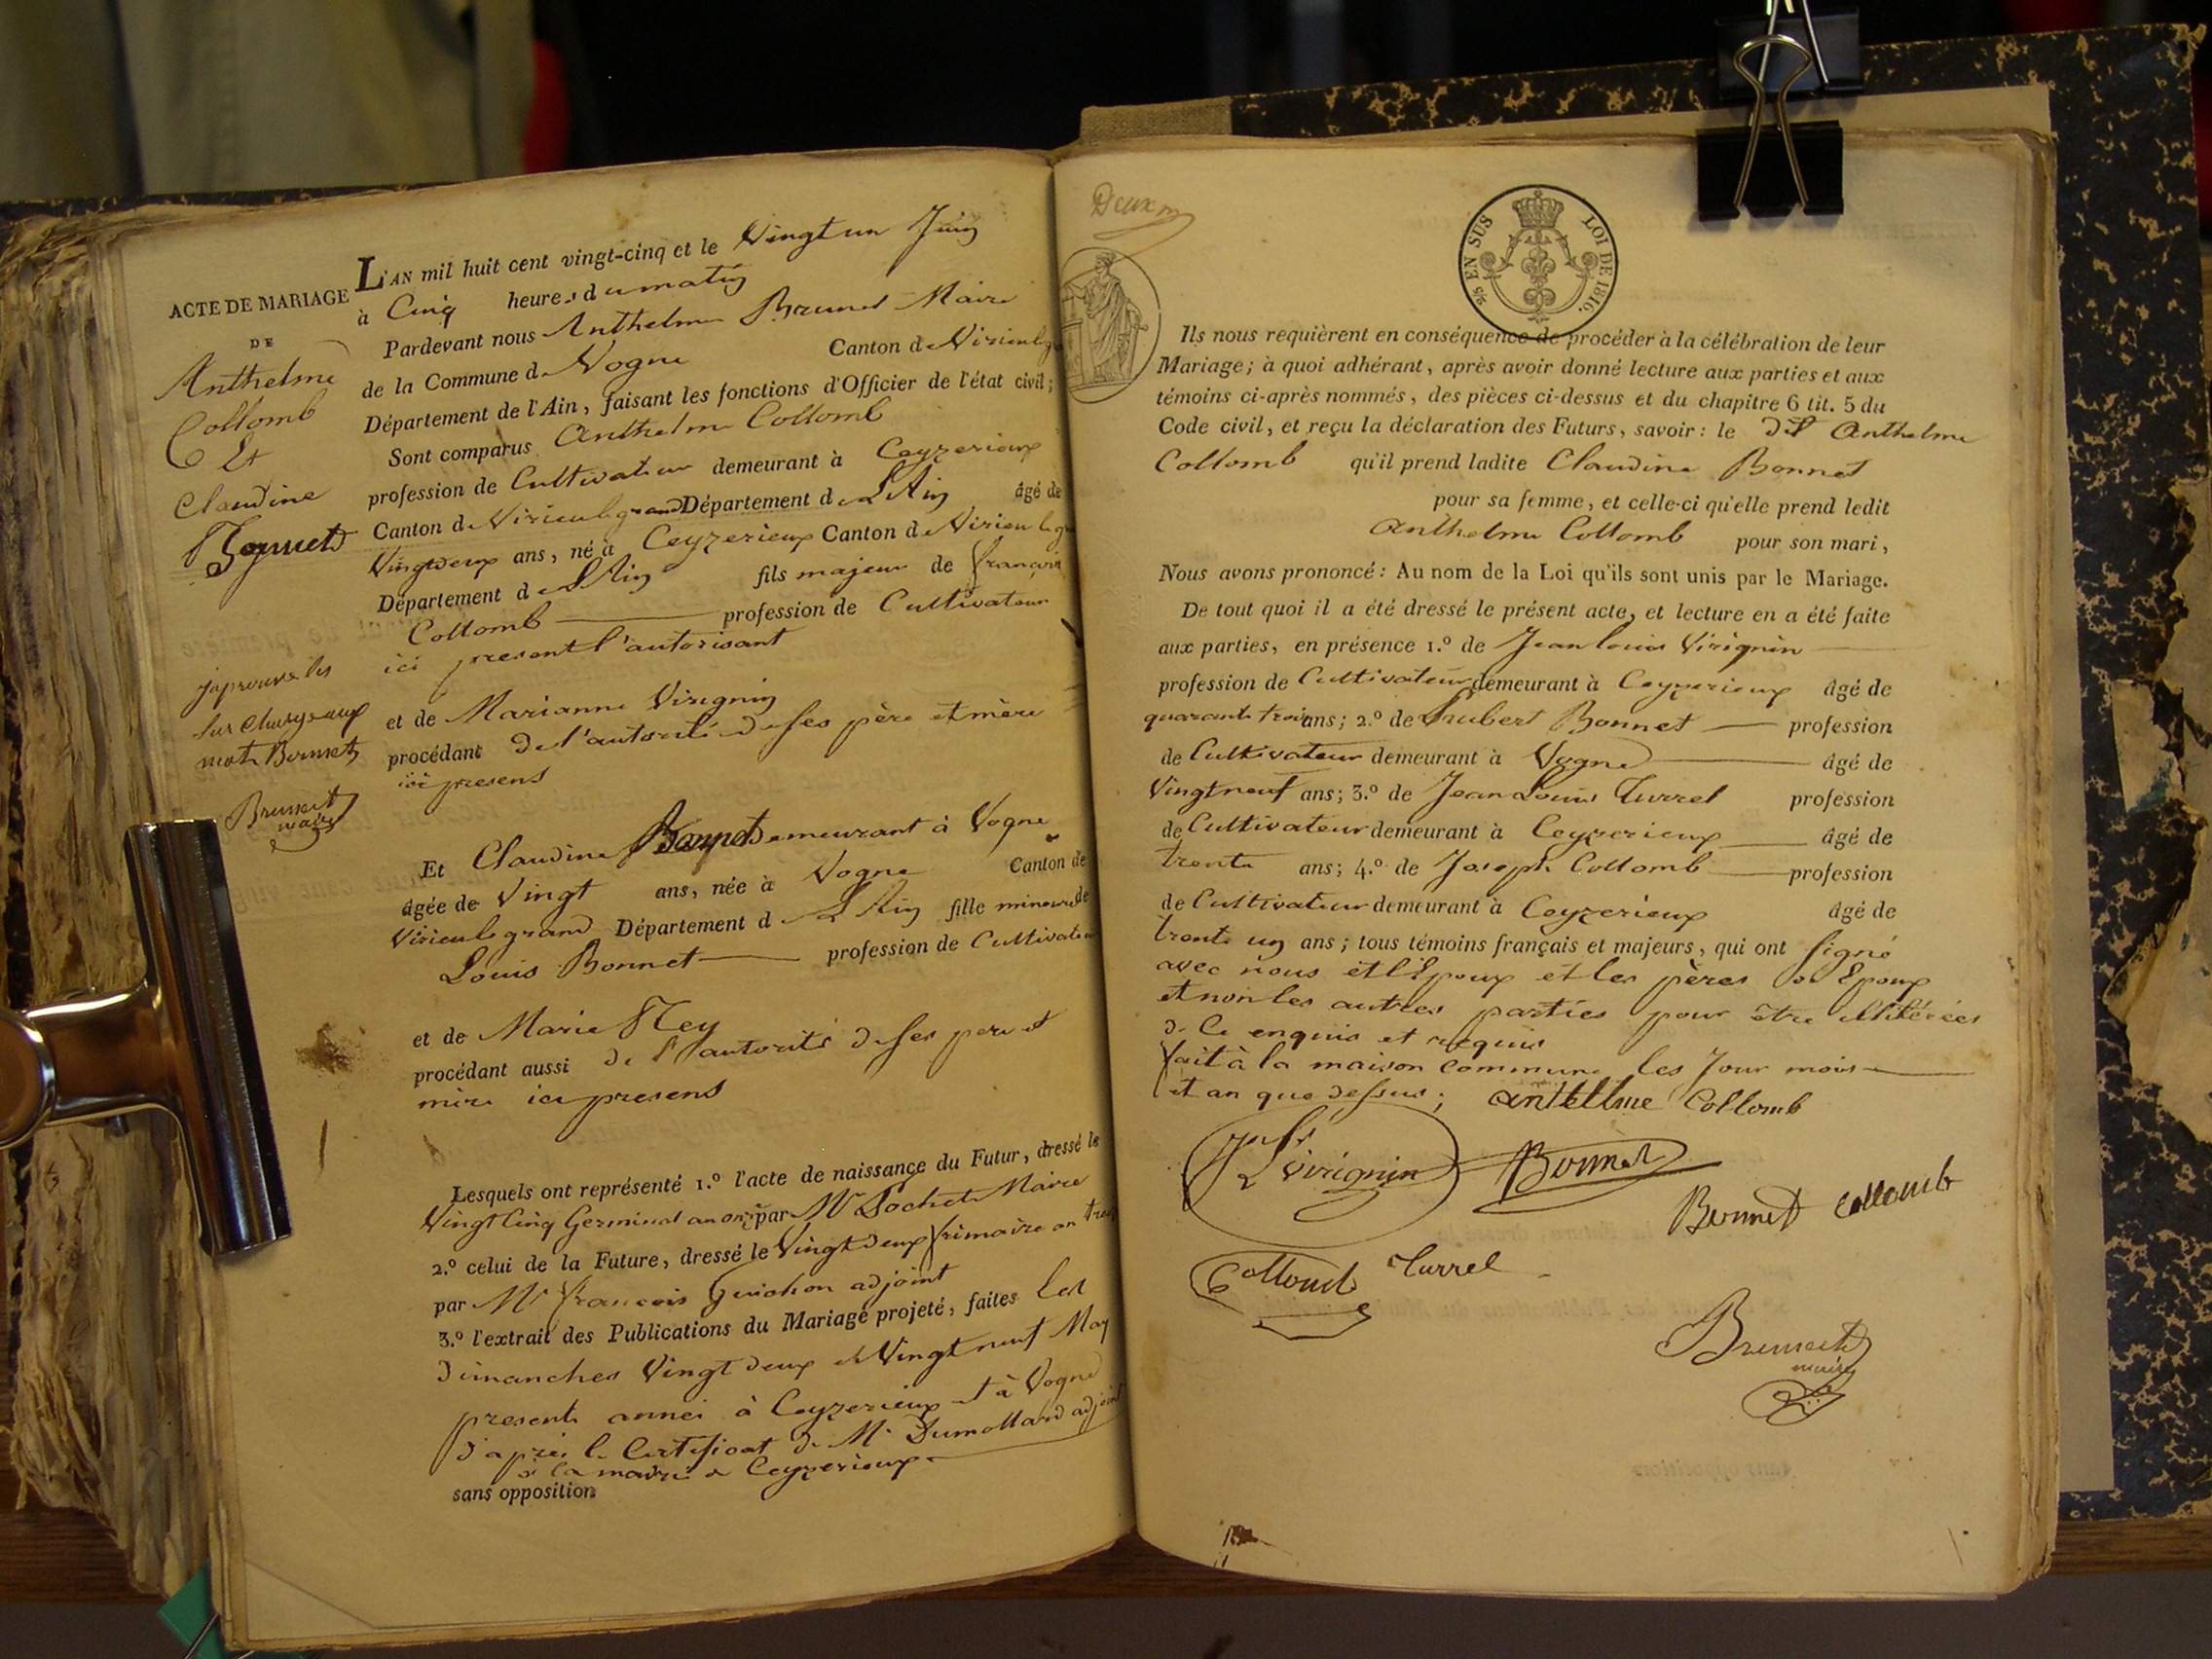 ACTE DE MARIAGE
DE
Anthelme
Collomb
Et
Claudine
Bonnet
japrouve les
surcharge aux
mots Bonnet
Brunet
maire
L'AN mil huit cent vingt-cinq et le Vingt un Juin
à Cinq heures du matin
Pardevant nous Anthelme Brunet Maire
de la Commune de Vogne Canton de Virieu le g
Département de l'Ain, faisant les fonctions d'Officier de l'état civil;
Sont comparus Anthelme Collomb
profession de Cultivateur demeurant à Ceyzerieux
Canton de Virieu le grand Département de L'Ain âgé de
Vingt deux ans, né à Ceyzerieux Canton de Virieu le g
Département de L'Ain fils majeur de françois
Collomb profession de Cultivateur
ici present l'autorisant
et de Marianne Virignin
procédant de l'autorité de ses père et mère
ici presens
Et Claudine Bonnet demeurant à Vogne
âgée de Vingt ans, née à Vogne Canton de
Virieu le grand Département de L'Ain fille mineure de
Louis Bonnet profession de Cultivateur
et de Marie Ney
procédant aussi de l'autorité de ses pere et
mère ici presens
Lesquels ont représenté 1.º l'acte de naissance du Futur, dressé le
Vingt Cinq Germinal an onze par Mr Pochet Maire
2.º celui de la Future, dressé le Vingt deux frimaire an treize
par Mr francois Guichon adjoint
3.º l'extrait des Publications du Mariage projeté, faites les
Dimanches Vingt deux et Vingt neuf May
presente année à Ceyzerieux et à Vogne
d'après le Certificat de Mr Dumollard adjoint
à la mairie de Ceyzerieux
sans opposition
Deux
5/5 EN SUS LOI DE 1816.
Ils nous requièrent en conséquence de procéder à la célébration de leur
Mariage; à quoi adhérant, après avoir donné lecture aux parties et aux
témoins ci-après nommés, des pièces ci-dessus et du chapitre 6 tit. 5 du
Code civil, et reçu la déclaration des Futurs, savoir: le dit Anthelme
Collomb qu'il prend ladite Claudine Bonnet
pour sa femme, et celle-ci qu'elle prend ledit
Anthelme Collomb pour son mari,
Nous avons prononcé: Au nom de la Loi qu'ils sont unis par le Mariage.
De tout quoi il a été dressé le présent acte, et lecture en a été faite
aux parties, en présence 1.º de Jean louis Virignin
profession de Cultivateur demeurant à Ceyzerieux âgé de
quarante trois ans; 2.º de Bonnet profession
de Cultivateur demeurant à Vogne âgé de
Vingt neuf ans; 3.º de Jean Louis Turrel profession
de Cultivateur demeurant à Ceyzerieux âgé de
trente ans; 4.º de Joseph Collomb profession
de Cultivateur demeurant à Ceyzerieux âgé de
trente un ans; tous témoins français et majeurs, qui ont signé
avec nous et l'Epoux et les pères des Epoux
et non les autres parties pour être illitérées
de ce enquis et requis
fait à la maison commune les Jour mois
et an que dessus; antellme Collomb
J L Virignin Bonnet
Bonnet collomb
Collomb Turrel
Brunet
maire